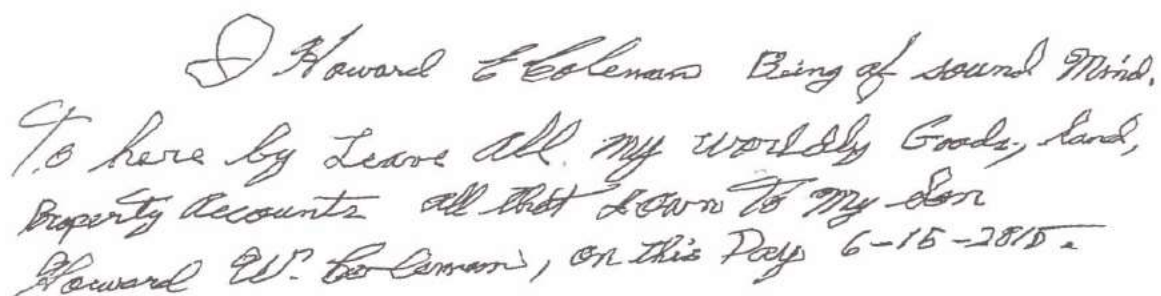 I Howard E Coleman Being of sound Mind.
To here by Leave All. my worldly Goods, land,
Property Accounts all that I own To my Son
Howard W. Coleman, on this Day 6-15-2015.